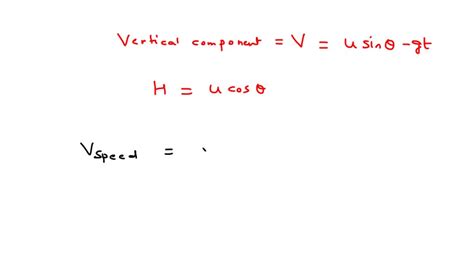 Vertical component = V = u sinθ - gt
H = u cosθ
Vspeed =